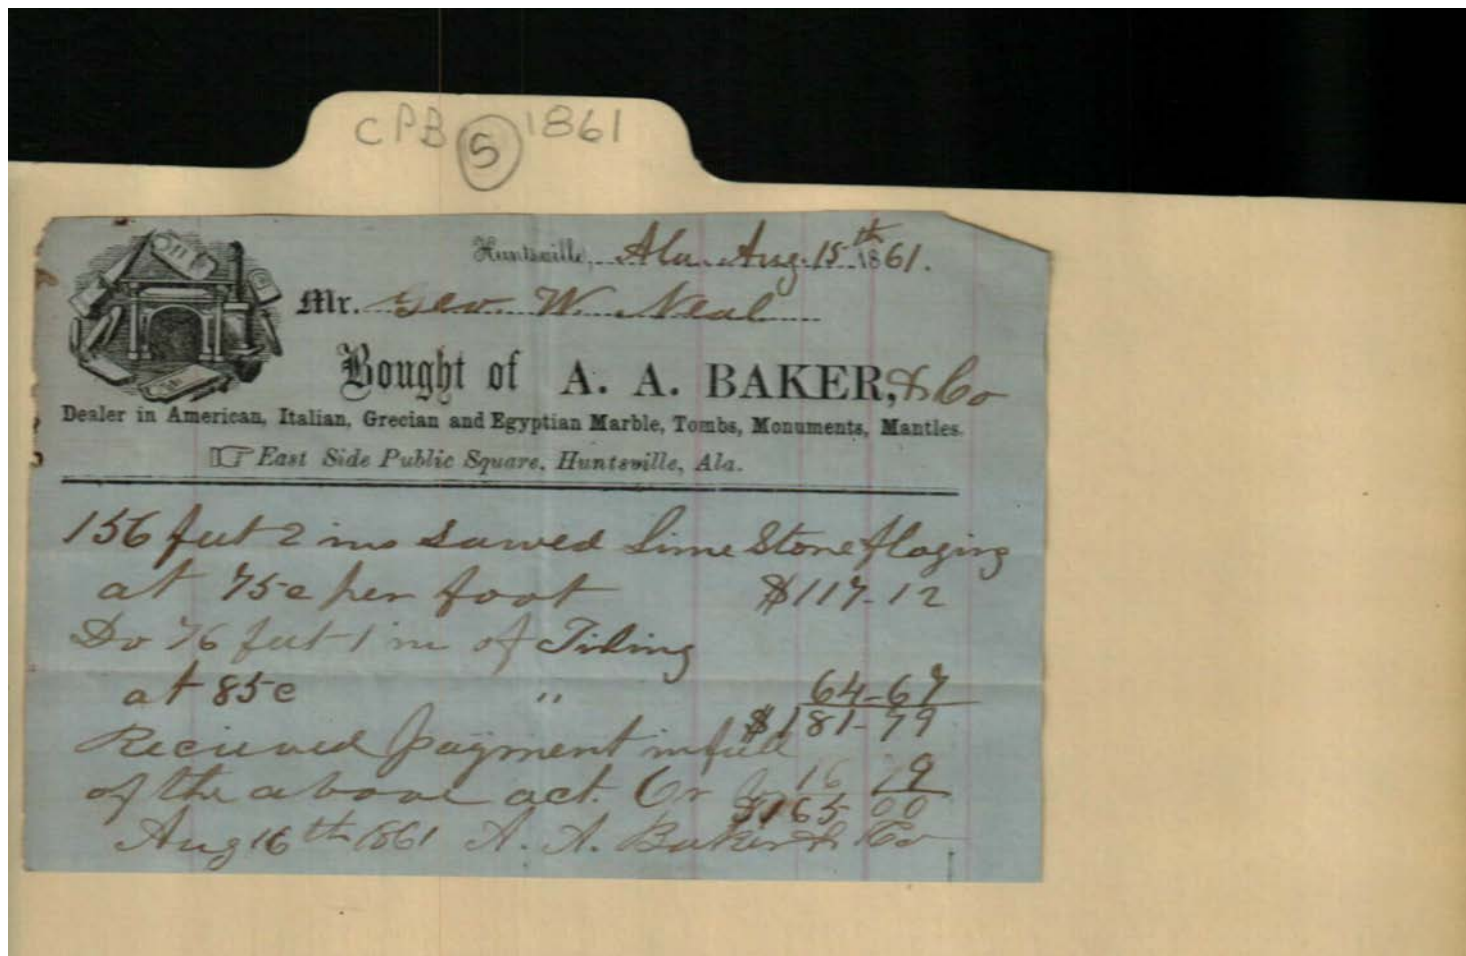 CPB 5 1861
Huntsville, Ala. Aug. 15th 1861.
Mr. Geo. W. Neal
Bought of A. A. BAKER, & Co
Dealer in American, Italian, Grecian and Egyptian Marble, Tombs, Monuments, Mantles.
East Side Public Square, Huntsville, Ala.
156 feet 2 ins Sawed Lime Stone flaging
at 75c per foot $117-12
Do 76 feet 1 in of Tiling
at 85c " 64-67
$181-79
Recieved payment in full
of the above act. Cr by 16 79
$165-00
Aug 16th 1861 A. A. Baker & Co